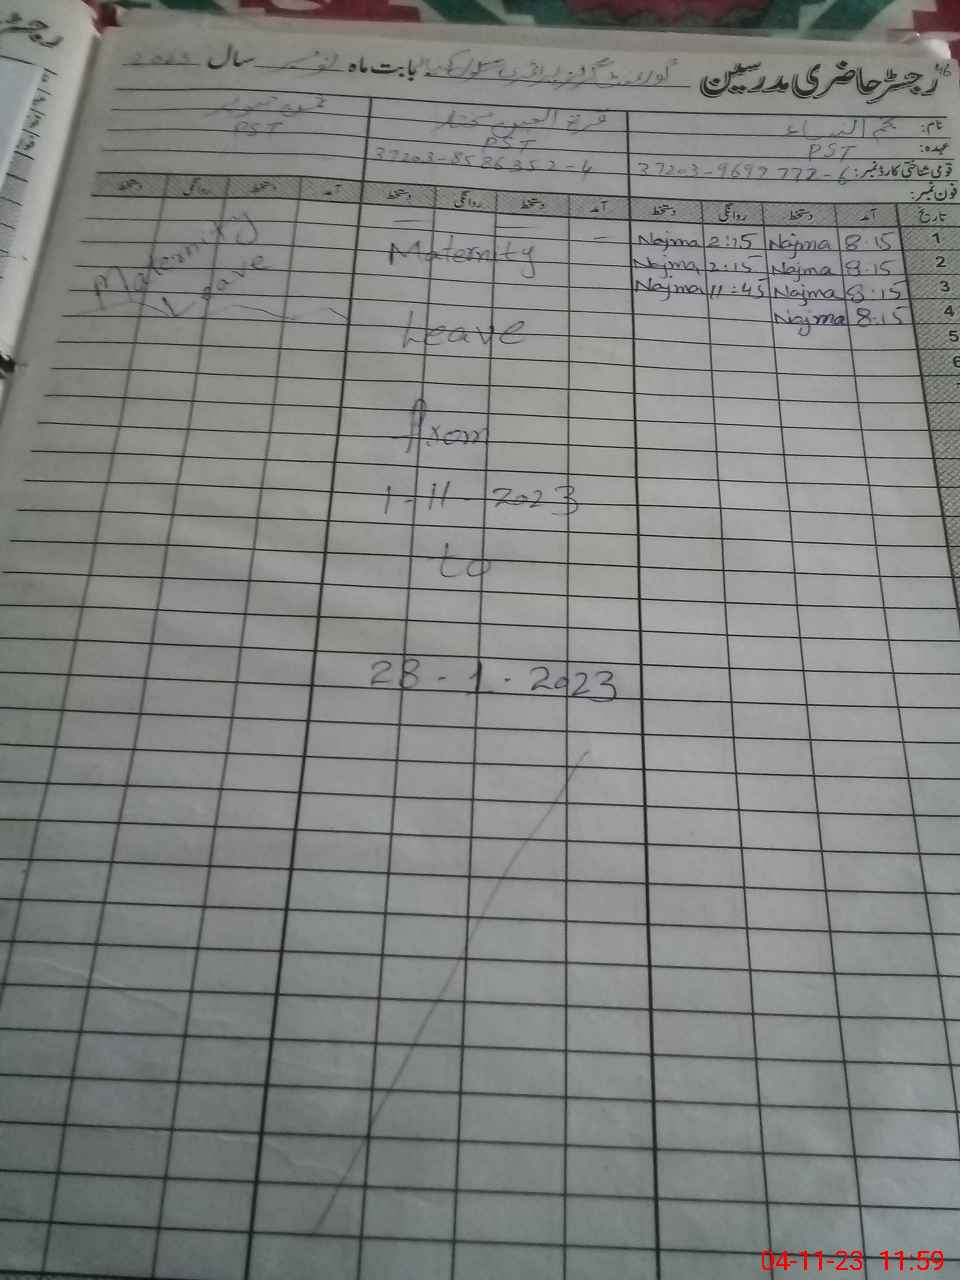 46
رجسٹر حاضری مدرسین
بابت ماہ نومبر سال 2023
نام: نجم النساء
عہدہ: PST PST PST
قومی شناختی کارڈ نمبر: 37203-9697772-6 37203-8586352-4
فون نمبر:
تاریخ آمد دستخط روانگی دستخط آمد دستخط روانگی دستخط آمد دستخط روانگی دستخط
1 8.15 Najma 2:15 Najma
2 8.15 Najma 2:15 Najma
3 8.15 Najma 11:45 Najma
4 8.15 Najma
5
6
Maternity
Leave
from
1-11-2023
to
28-1-2023
Maternity
Leave
04-11-23 11:59